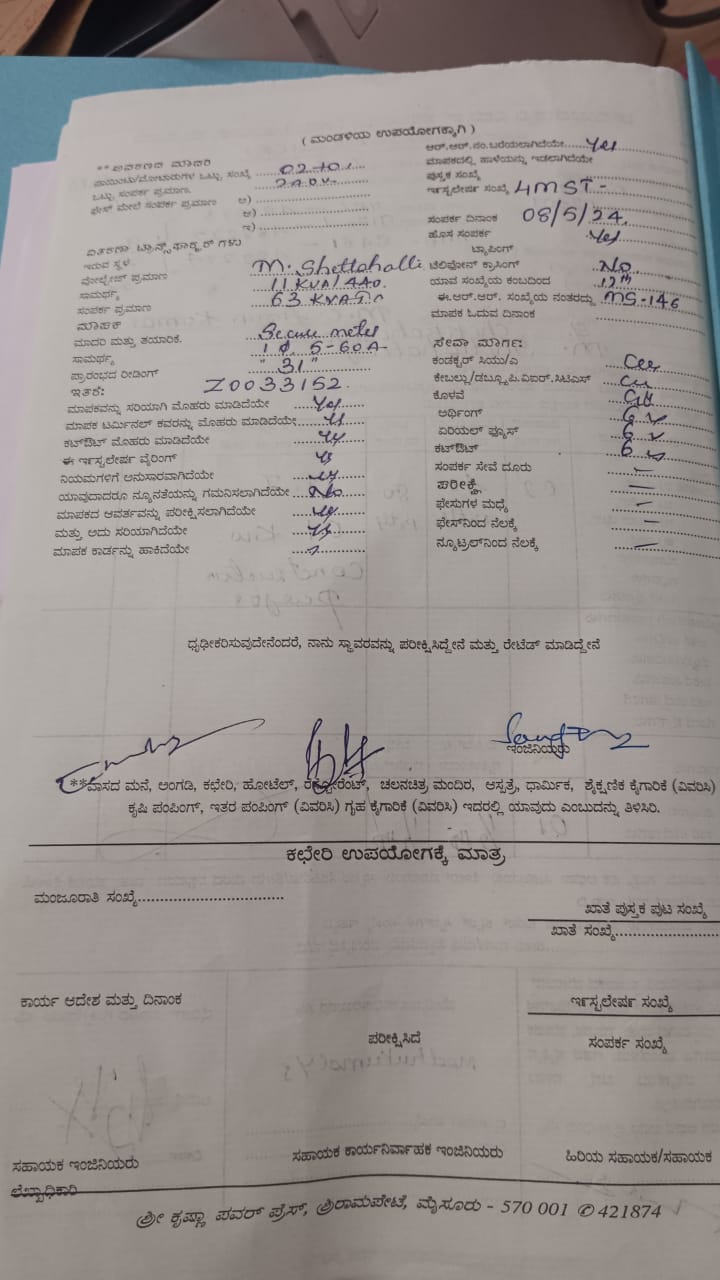 ( ಮಂಡಳಿಯ ಉಪಯೋಗಕ್ಕಾಗಿ )
**ಉಪಕರಣದ ಮಾದರಿ
ಪಾಯಿಂಟು/ಮೋಟಾರುಗಳ ಒಟ್ಟು ಸಂಖ್ಯೆ
ಒಟ್ಟು ಸಂಪರ್ಕ ಪ್ರಮಾಣ 240V.
ಫೇಸ್ ಮೇಲೆ ಸಂಪರ್ಕ ಪ್ರಮಾಣ ಅ)
ಆ)
ಇ)
ವಿತರಣಾ ಟ್ರಾನ್ಸ್‌ಫಾರ್ಮರ್‌ಗಳು
ಇರುವ ಸ್ಥಳ M. Shettahalli
ವೋಲ್ಟೇಜ್ ಪ್ರಮಾಣ 11 KVA/440.
ಸಾಮರ್ಥ್ಯ 63 KVA
ಸಂಪರ್ಕ ಪ್ರಮಾಣ
ಮಾಪಕ
ಮಾದರಿ ಮತ್ತು ತಯಾರಿಕೆ. Secure meter
ಸಾಮರ್ಥ್ಯ 1 Φ 5-60A
ಪ್ರಾರಂಭದ ರೀಡಿಂಗ್ " 31 "
ಇತರೆ: Z0033152.
ಮಾಪಕವನ್ನು ಸರಿಯಾಗಿ ಮೊಹರು ಮಾಡಿದೆಯೇ Yes
ಮಾಪಕ ಟರ್ಮಿನಲ್ ಕವರನ್ನು ಮೊಹರು ಮಾಡಿದೆಯೇ Yes
ಕಟ್‌ಔಟ್ ಮೊಹರು ಮಾಡಿದೆಯೇ Yes
ಈ ಇನ್ಸ್ಟಲೇಷನ್ ವೈರಿಂಗ್ Yes
ನಿಯಮಗಳಿಗೆ ಅನುಸಾರವಾಗಿದೆಯೇ Yes
ಯಾವುದಾದರೂ ನ್ಯೂನತೆಯನ್ನು ಗಮನಿಸಲಾಗಿದೆಯೇ No
ಮಾಪಕದ ಆವರ್ತವನ್ನು ಪರೀಕ್ಷಿಸಲಾಗಿದೆಯೇ Yes
ಮತ್ತು ಅದು ಸರಿಯಾಗಿದೆಯೇ Yes
ಮಾಪಕ ಕಾರ್ಡನ್ನು ಹಾಕಿದೆಯೇ
ಆರ್.ಆರ್.ನಂ.ಬರೆಯಲಾಗಿದೆಯೇ Yes
ಮಾಪಕದಲ್ಲಿ ಹಾಳೆಯನ್ನು ಇಡಲಾಗಿದೆಯೇ
ಪುಸ್ತಕ ಸಂಖ್ಯೆ
ಇನ್ಸ್ಟಲೇಷನ್ ಸಂಖ್ಯೆ 4MST -
ಸಂಪರ್ಕ ದಿನಾಂಕ 08/5/24.
ಹೊಸ ಸಂಪರ್ಕ Yes
ಟ್ಯಾಪಿಂಗ್
ಟೆಲಿಫೋನ್ ಕ್ರಾಸಿಂಗ್ No
ಯಾವ ಸಂಖ್ಯೆಯ ಕಂಬದಿಂದ 12th
ಈ.ಆರ್.ಆರ್. ಸಂಖ್ಯೆಯ ನಂತರದ್ದು MS-146
ಮಾಪಕ ಓದುವ ದಿನಾಂಕ
ಸೇವಾ ಮಾರ್ಗ:
ಕಂಡಕ್ಟರ್ ಸಿಯು/ಎ
ಕೇಬಲ್ಲು/ಡಬ್ಲ್ಯೂಪಿ.ಐಆರ್.ಸಿಟಿಎಸ್ Cu
ಕೊಳವೆ
ಅರ್ಥಿಂಗ್
ಏರಿಯಲ್ ಫ್ಯೂಸ್
ಕಟ್‌ಔಟ್
ಸಂಪರ್ಕ ಸೇವೆ ದೂರು –
ಪರೀಕ್ಷೆ –
ಫೇಸುಗಳ ಮಧ್ಯೆ –
ಫೇಸ್‌ನಿಂದ ನೆಲಕ್ಕೆ –
ನ್ಯೂಟ್ರಲ್‌ನಿಂದ ನೆಲಕ್ಕೆ –
ಧೃಢೀಕರಿಸುವುದೇನೆಂದರೆ, ನಾನು ಸ್ಥಾವರವನ್ನು ಪರೀಕ್ಷಿಸಿದ್ದೇನೆ ಮತ್ತು ರೇಟೆಡ್ ಮಾಡಿದ್ದೇನೆ
ಇಂಜಿನಿಯರು
**ವಾಸದ ಮನೆ, ಅಂಗಡಿ, ಕಛೇರಿ, ಹೋಟೆಲ್, ರೆಸ್ಟೋರೆಂಟ್, ಚಲನಚಿತ್ರ ಮಂದಿರ, ಆಸ್ಪತ್ರೆ, ಧಾರ್ಮಿಕ, ಶೈಕ್ಷಣಿಕ ಕೈಗಾರಿಕೆ (ವಿವರಿಸಿ)
ಕೃಷಿ ಪಂಪಿಂಗ್, ಇತರ ಪಂಪಿಂಗ್ (ವಿವರಿಸಿ) ಗೃಹ ಕೈಗಾರಿಕೆ (ವಿವರಿಸಿ) ಇದರಲ್ಲಿ ಯಾವುದು ಎಂಬುದನ್ನು ತಿಳಿಸಿರಿ.
ಕಛೇರಿ ಉಪಯೋಗಕ್ಕೆ ಮಾತ್ರ
ಮಂಜೂರಾತಿ ಸಂಖ್ಯೆ
ಖಾತೆ ಪುಸ್ತಕ ಪುಟ ಸಂಖ್ಯೆ
ಖಾತೆ ಸಂಖ್ಯೆ
ಕಾರ್ಯ ಆದೇಶ ಮತ್ತು ದಿನಾಂಕ
ಇನ್ಸ್ಟಲೇಷನ್ ಸಂಖ್ಯೆ
ಪರೀಕ್ಷಿಸಿದೆ
ಸಂಪರ್ಕ ಸಂಖ್ಯೆ
ಸಹಾಯಕ ಇಂಜಿನಿಯರು
ಸಹಾಯಕ ಕಾರ್ಯನಿರ್ವಾಹಕ ಇಂಜಿನಿಯರು
ಹಿರಿಯ ಸಹಾಯಕ/ಸಹಾಯಕ
ಲೆಖ್ಖಾಧಿಕಾರಿ
ಶ್ರೀ ಕೃಷ್ಣಾ ಪವರ್ ಪ್ರೆಸ್, ಶ್ರೀರಾಮಪೇಟೆ, ಮೈಸೂರು - 570 001 ✆ 421874